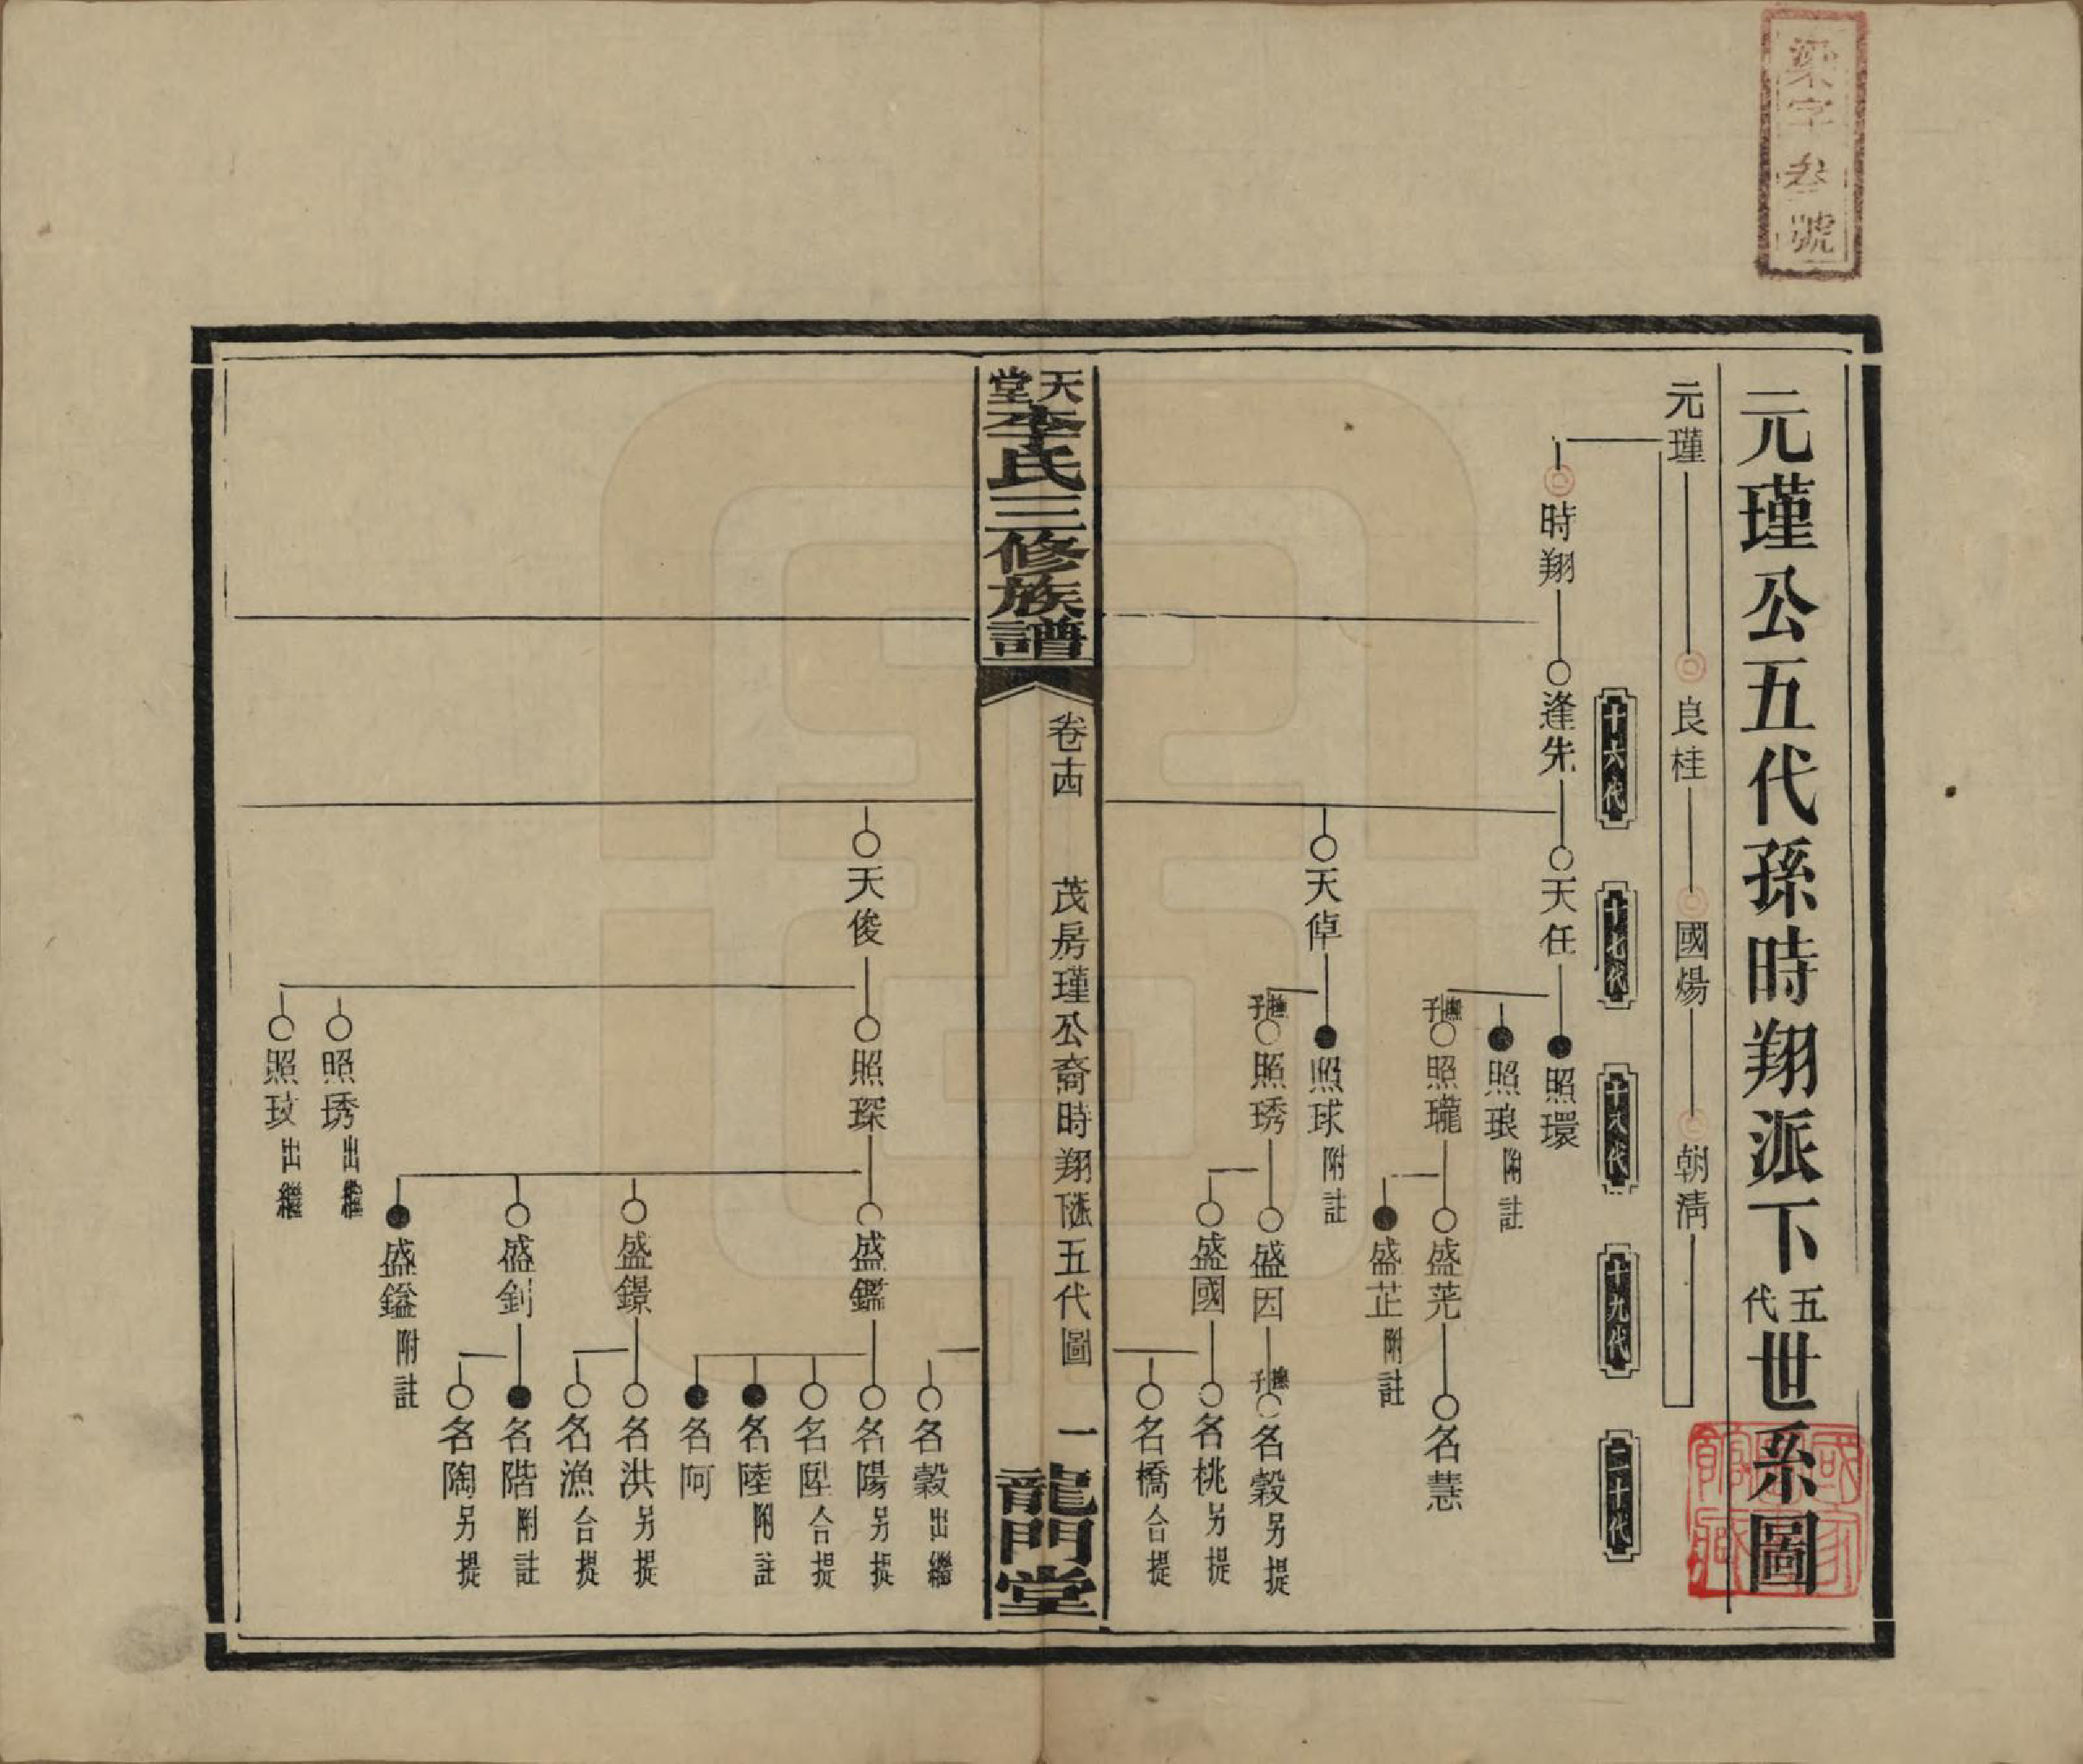 梁字叁號
元瑾公五代孫時翔派下五代世系圖
元瑾
良桂
國煬
朝清
十六代
十七代
十八代
十九代
二十代
時翔
逢先
天任
照環
照琅 附註
撫子 照瓏
盛茪
名慧
盛芷 附註
天倬
照球 附註
撫子 照琇
盛因
撫子 名穀 另提
盛國
名桃 另提
名橋 合提
天堂李氏三修族譜
卷十四
茂房瑾公裔時翔派下五代圖
一
龍門堂
名穀 出繼
天俊
照琛
盛鑑
名陽 另提
名陞 合提
名陸 附註
名阿
盛鐛
名洪 另提
名漁 合提
盛釗
名階 附註
名陶 另提
盛鎰 附註
照琇 出繼
照玟 出繼